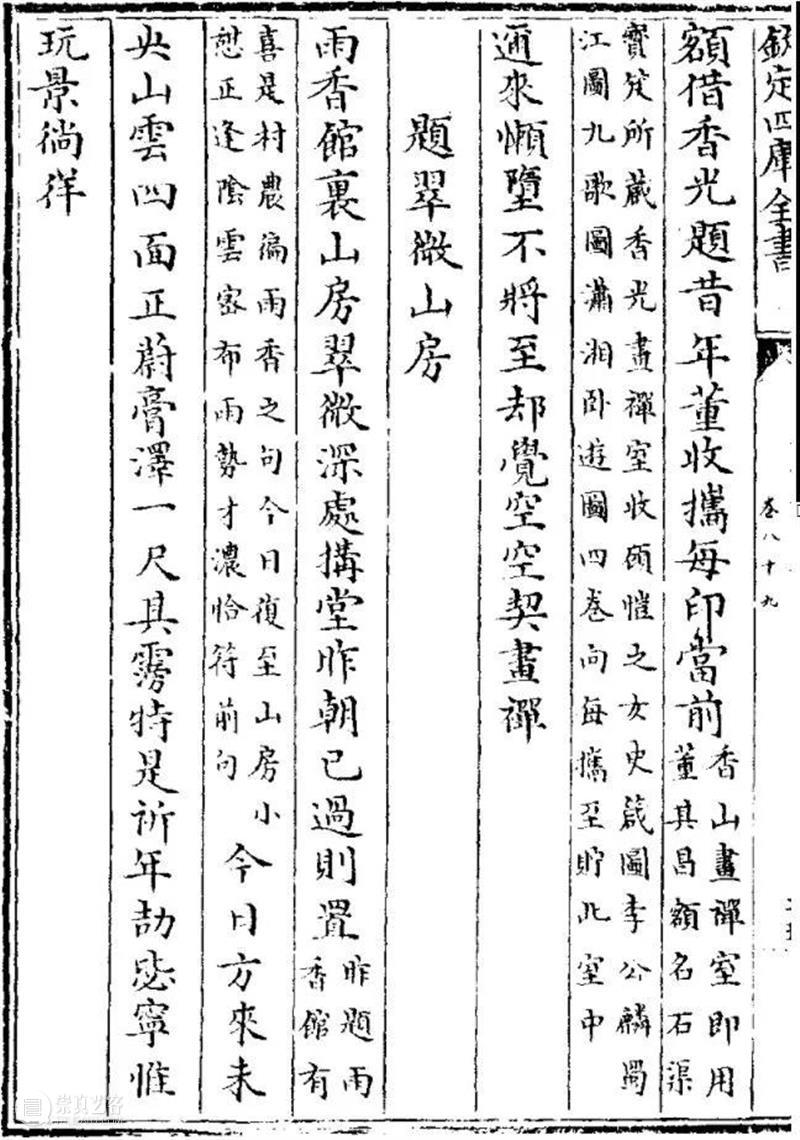 欽定四庫全書
卷八十九
額借香光題昔年董收攜每印當前
香山畫禪室即用
董其昌額名石渠
寶笈所藏香光畫禪室收顧愷之女史箴圖李公麟蜀
江圖九歌圖瀟湘卧遊圖四卷向每攜至貯此室中
邇來懶墮不將至却覺空空契畫禪
題翠微山房
雨香館裏山房翠微深處搆堂昨朝已過則置
昨題雨
香館有
喜是村農徧雨香之句今日復至山房小
憩正逢陰雲密布雨勢才濃恰符前句
今日方來未
央山雲四面正蔚膏澤一尺其霶特是祈年劼毖寧惟
玩景徜徉
崇真艺客